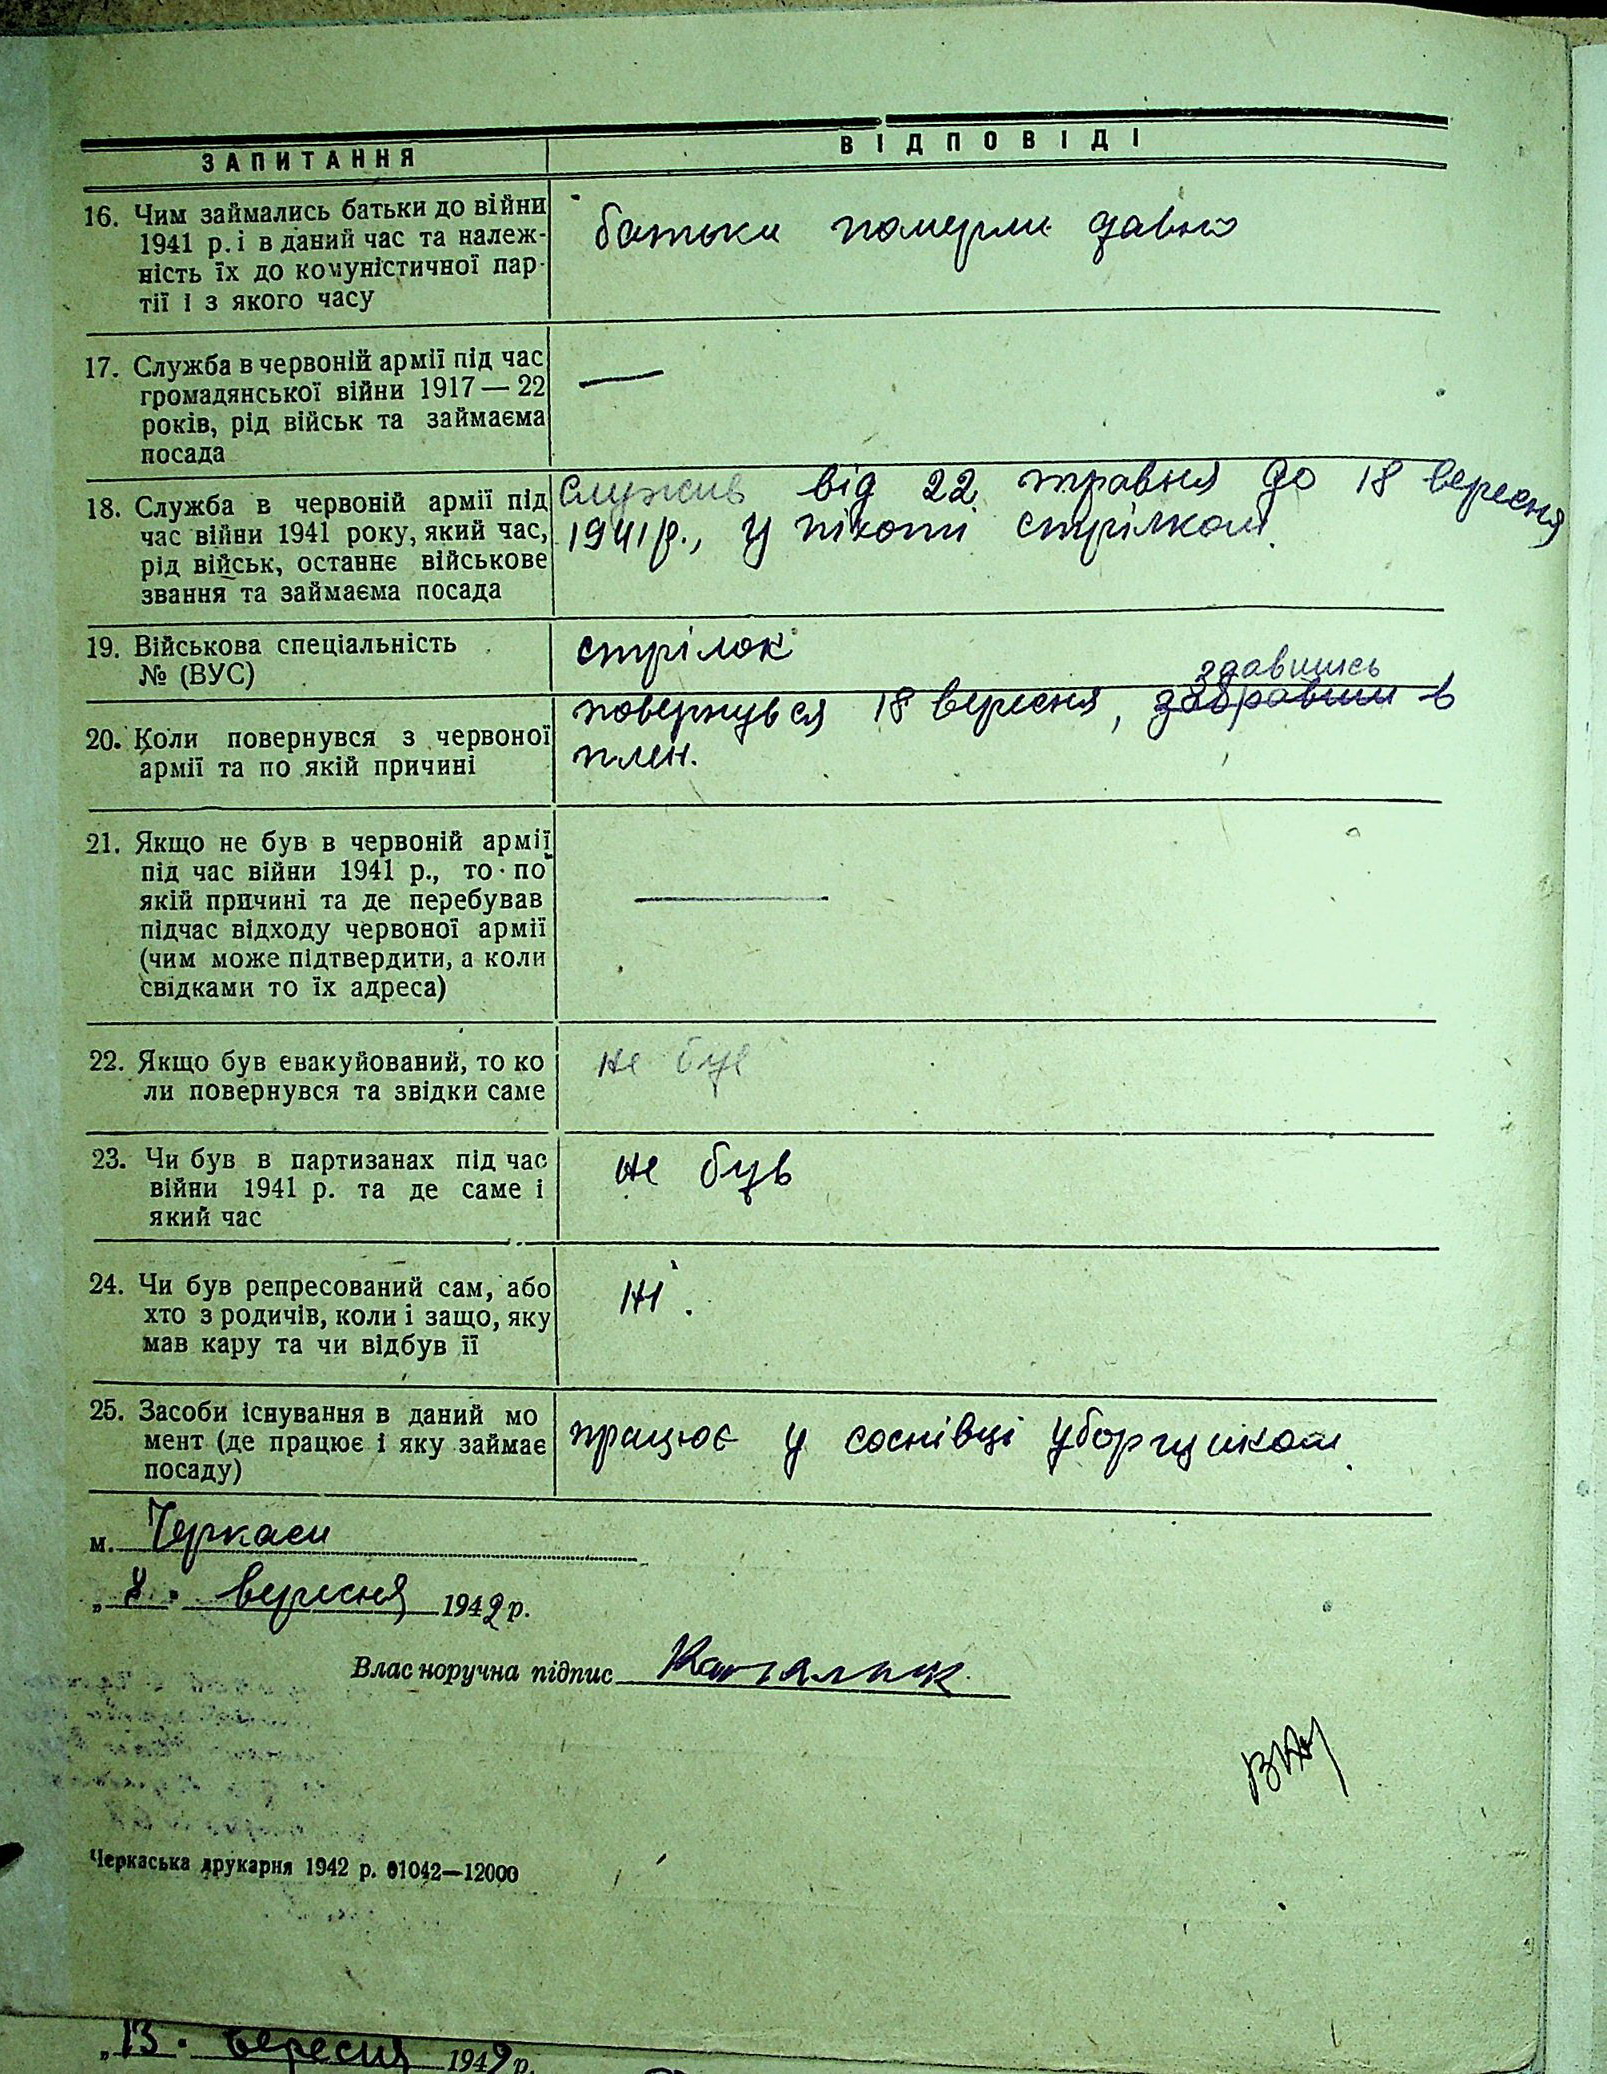 ЗАПИТАННЯ
ВІДПОВІДІ
16. Чим займались батьки до війни
1941 р. і в даний час та належ-
ність їх до комуністичної пар-
тії і з якого часу
батьки померли давно
17. Служба в червоній армії під час
громадянської війни 1917 — 22
років, рід військ та займаєма
посада
—
18. Служба в червоній армії під
час війни 1941 року, який час,
рід військ, останнє військове
звання та займаєма посада
Служив від 22 травня до 18 вересня
1941 р., у піхоті стрілком.
19. Військова спеціальність
№ (ВУС)
стрілок
20. Коли повернувся з червоної
армії та по якій причині
здавшись
повернувся 18 вересня, забравши в
плен.
21. Якщо не був в червоній армії
під час війни 1941 р., то по
якій причині та де перебував
підчас відходу червоної армії
(чим може підтвердити, а коли
свідками то їх адреса)
—
22. Якщо був евакуйований, то ко
ли повернувся та звідки саме
не був
23. Чи був в партизанах під час
війни 1941 р. та де саме і
який час
не був
24. Чи був репресований сам, або
хто з родичів, коли і защо, яку
мав кару та чи відбув її
ні.
25. Засоби існування в даний мо
мент (де працює і яку займає
посаду)
працює у соснівці уборщиком.
м. Черкаси
„8." вересня 1942 р.
Власноручна підпис
Черкаська друкарня 1942 р. 01042—12000
„13." вересня 1942 р.